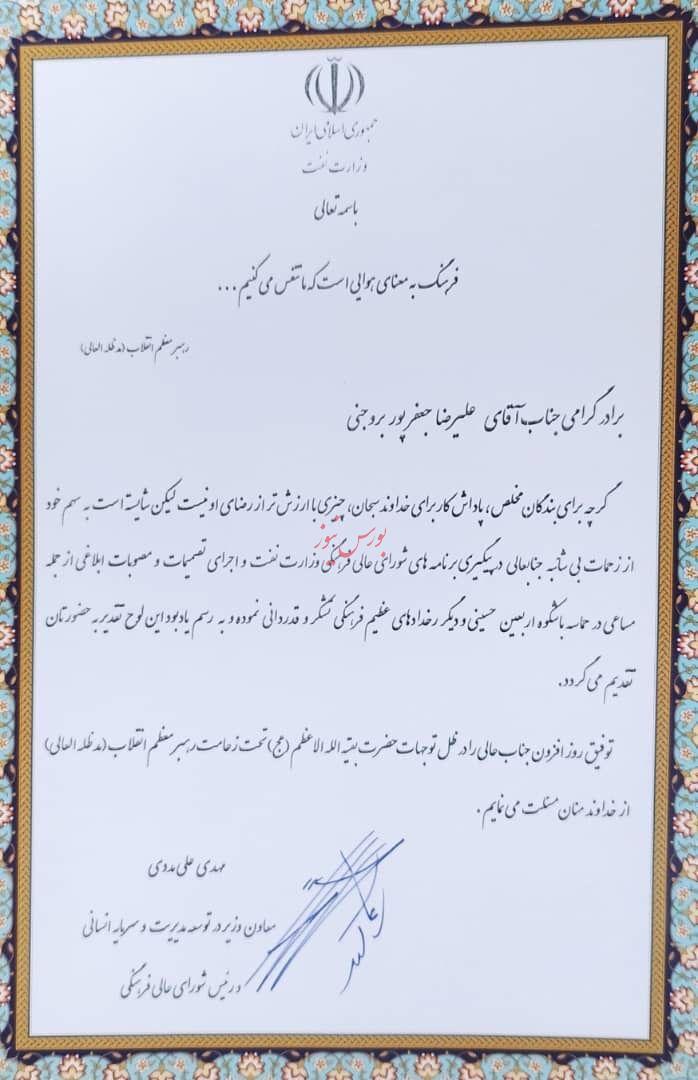 جمهوری اسلامی ایران
وزارت نفت
باسمه تعالی
فرهنگ به معنای هوایی است که ما تنفس می کنیم ...
رهبر معظم انقلاب (مدظله العالی)
برادر گرامی جناب آقای علیرضا جعفرپور بروجنی
گرچه برای بندگان مخلص، پاداش کار برای خداوند سبحان، چیزی با ارزش تر از رضای او نیست لیکن شایسته است به سهم خود
از زحمات بی شائبه جنابعالی در پیگیری برنامه های شورای عالی فرهنگی وزارت نفت و اجرای تصمیمات و مصوبات ابلاغی از جمله
مساعی در حماسه باشکوه اربعین حسینی و دیگر رخدادهای عظیم فرهنگی تشکر و قدردانی نموده و به رسم یادبود این لوح تقدیر به حضورتان
تقدیم می گردد.
توفیق روز افزون جناب عالی را در ظل توجهات حضرت بقیه الله الاعظم (عج) تحت زعامت رهبر معظم انقلاب (مدظله العالی)
از خداوند منان مسئلت می نمایم.
مهدی علی مددی
معاون وزیر در توسعه مدیریت و سرمایه انسانی
و رئیس شورای عالی فرهنگی
بورس نیوز